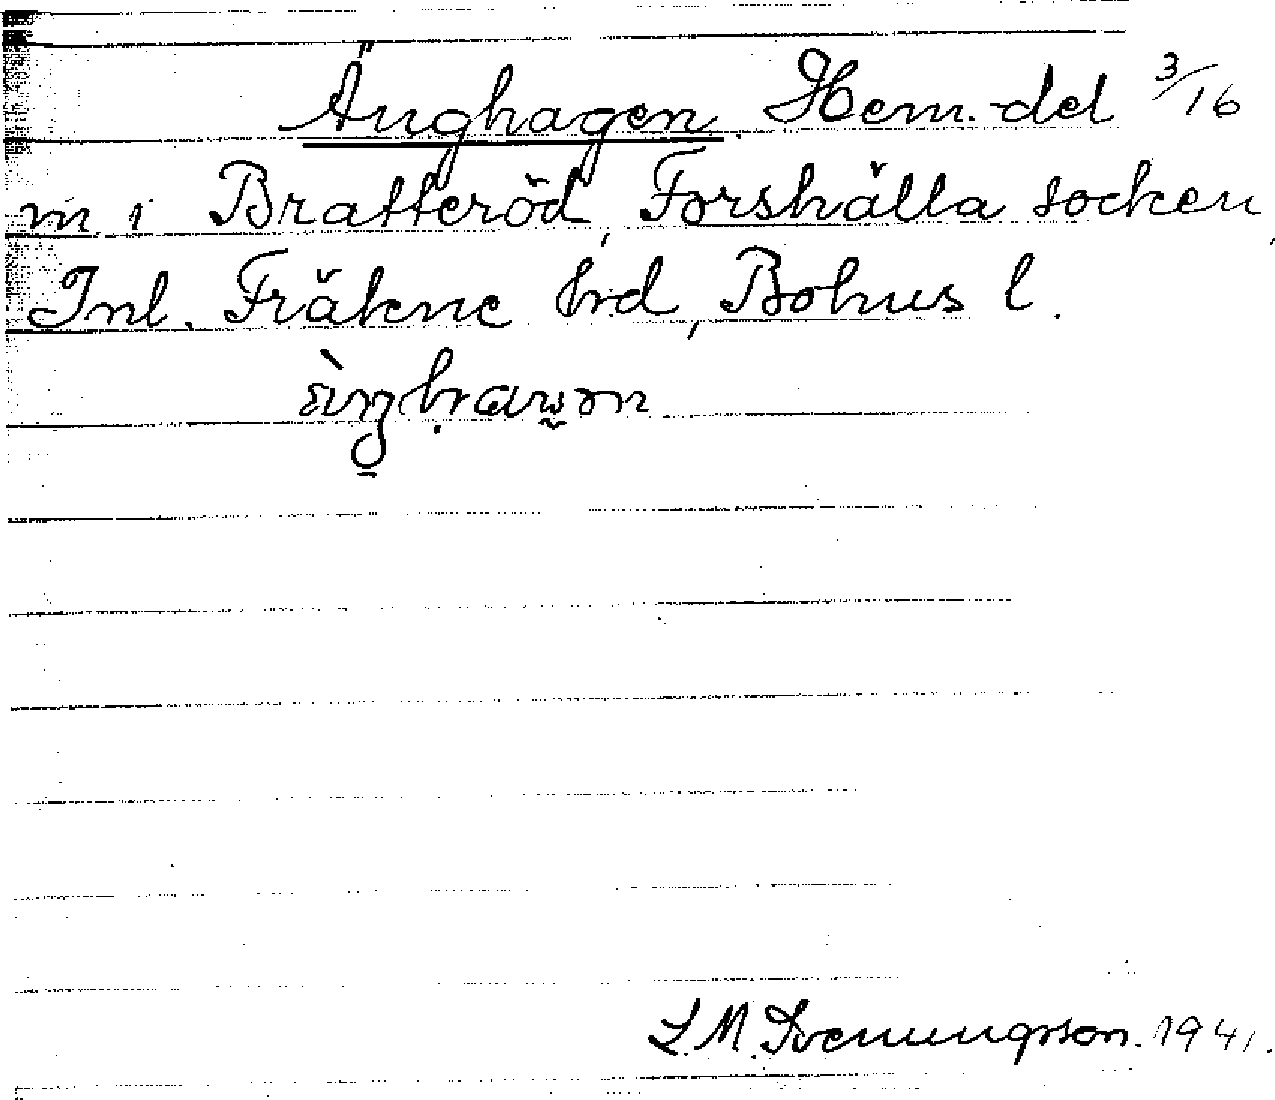 Änghagen Hem.-del 3/16
m i Bratteröd, Forshälla socken,
Inl. Fräkne hrd, Bohus l.
L. M. Svenungsson. 1941.